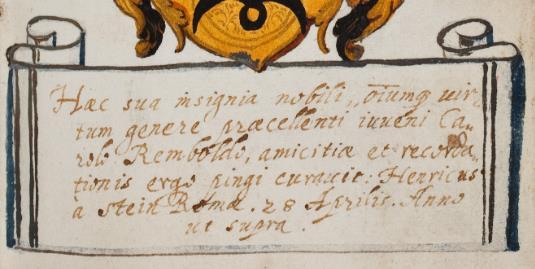 Hæc sua insignia nobili, õiumq uir„
tum genere præcellenti iuueni Ca„
rolo Remboldo, amicitiæ et recorda„
tionis ergo pingi curauit: Henricus
à Stein Romæ. 28 Aprilis. Anno
ut supra.